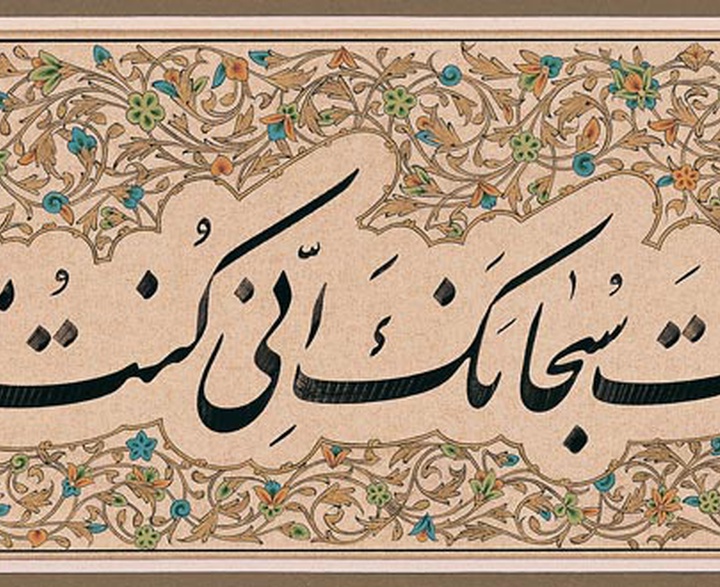 ت سُبْحَانَكَ اِنّی کُنتُ